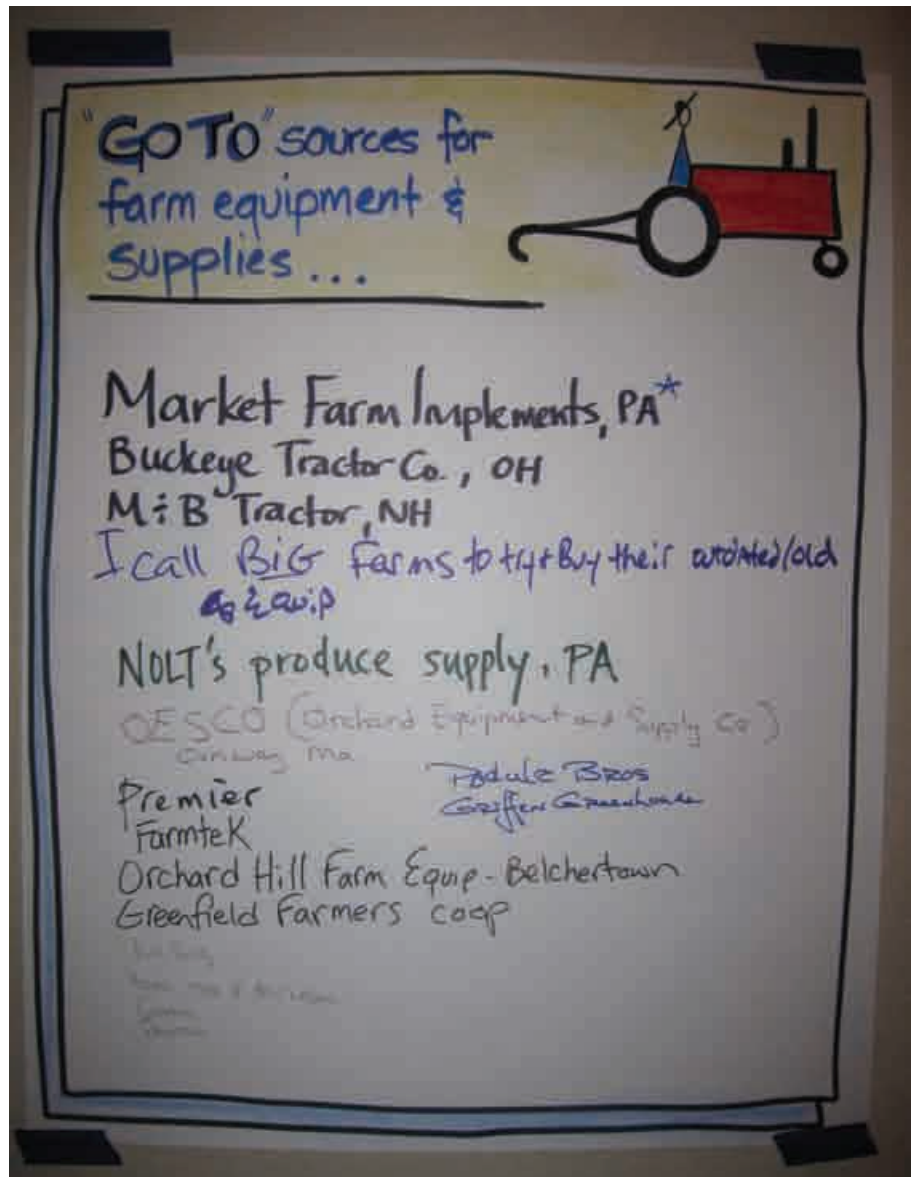 "GO TO" sources for
farm equipment &
supplies ...
Market Farm Implements, PA*
Buckeye Tractor Co., OH
M & B Tractor, NH
I call BiG farms to try + Buy their outdated/old
Equip
NOLT's produce supply, PA
OESCO (Orchard Equipment and Supply Co)
Conway Ma
Premier
Bros
Griffen Greenhouse
FarmteK
Orchard Hill Farm Equip - Belchertown
Greenfield Farmers coop